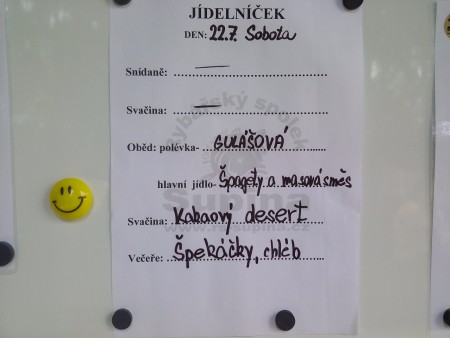 JÍDELNÍČEK
DEN: 22.7. Sobota
Snídaně: —
Svačina: —
Oběd: polévka- GULÁŠOVÁ
hlavní jídlo- Špagety a masová směs
Svačina: Kakaový desert
Večeře: Špekáčky, chléb
rybářský spolek
Šupina
www.rssupina.cz